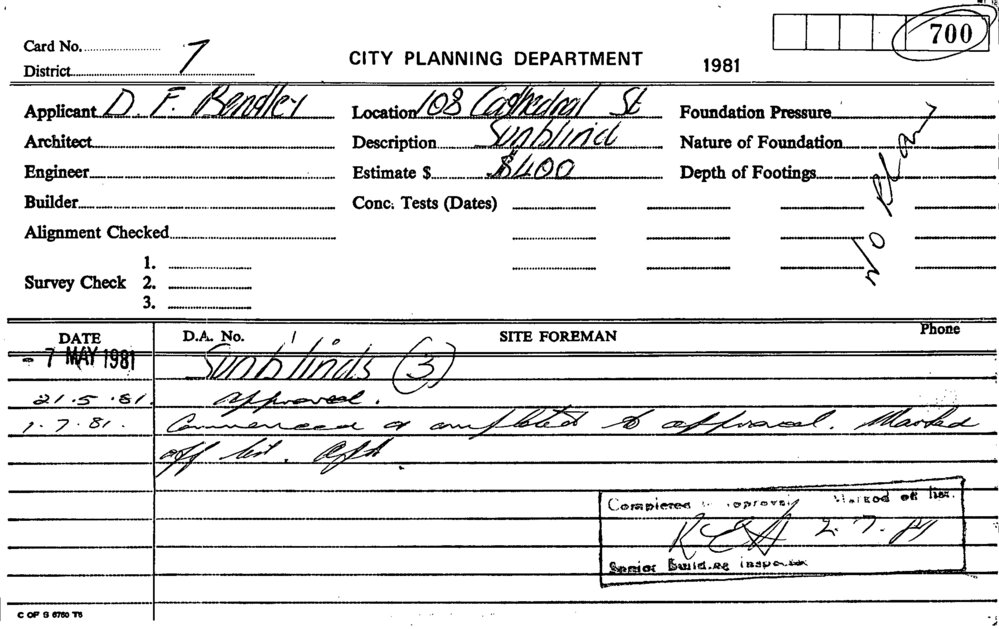 700
Card No. 7
CITY PLANNING DEPARTMENT 1981
District
Applicant D. F. Bendley Location 108 Cathedral St Foundation Pressure
Architect Description Sunblind Nature of Foundation
Engineer Estimate $ $400 Depth of Footings
No Plan
Builder Conc. Tests (Dates)
Alignment Checked
1.
Survey Check 2.
3.
DATE D.A. No. SITE FOREMAN Phone
- 7 MAY 1981 Sunblinds (3)
21.5.81. approved.
1.7.81. Commenced & completed to approval. Marked
off list.
Completed to approval Marked off list.
2.7.81
Senior Building Inspector
C OF S 6760 T5